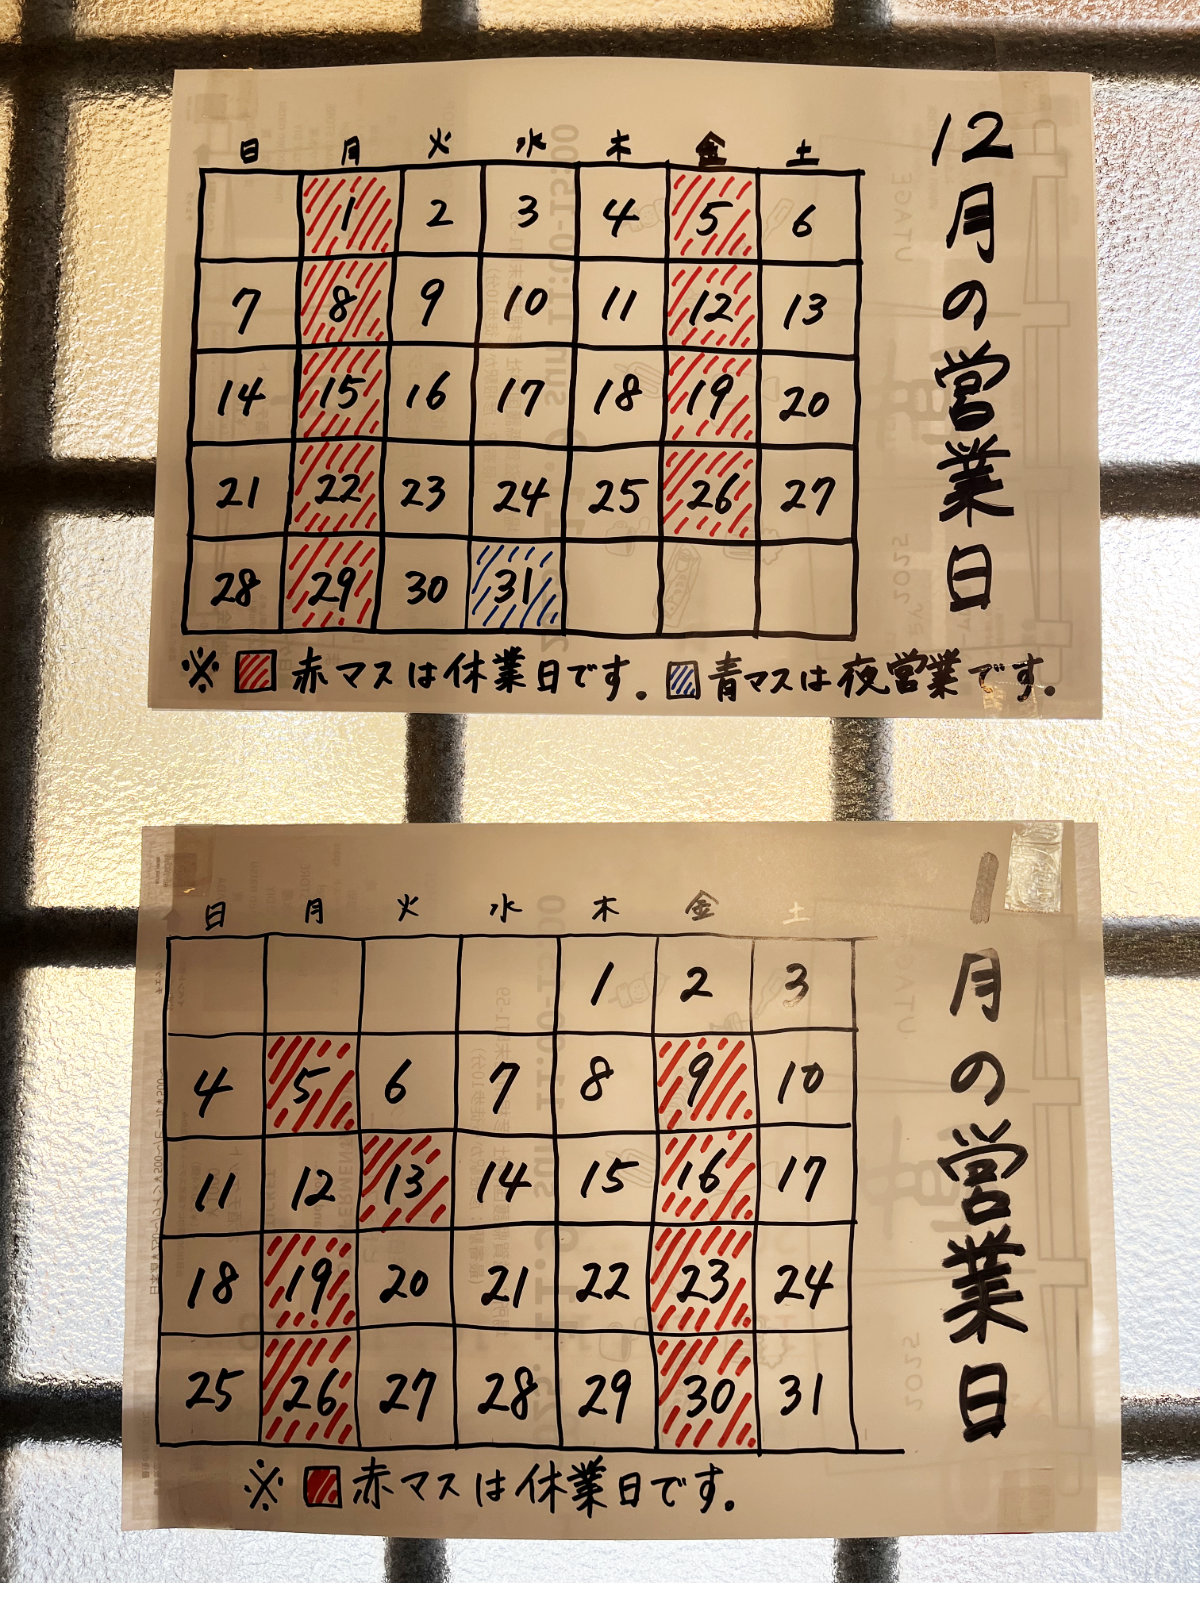 12月の営業日
日 月 火 水 木 金 土
1 2 3 4 5 6
7 8 9 10 11 12 13
14 15 16 17 18 19 20
21 22 23 24 25 26 27
28 29 30 31
※ 赤マスは休業日です。 青マスは夜営業です。
1月の営業日
日 月 火 水 木 金 土
1 2 3
4 5 6 7 8 9 10
11 12 13 14 15 16 17
18 19 20 21 22 23 24
25 26 27 28 29 30 31
※ 赤マスは休業日です。